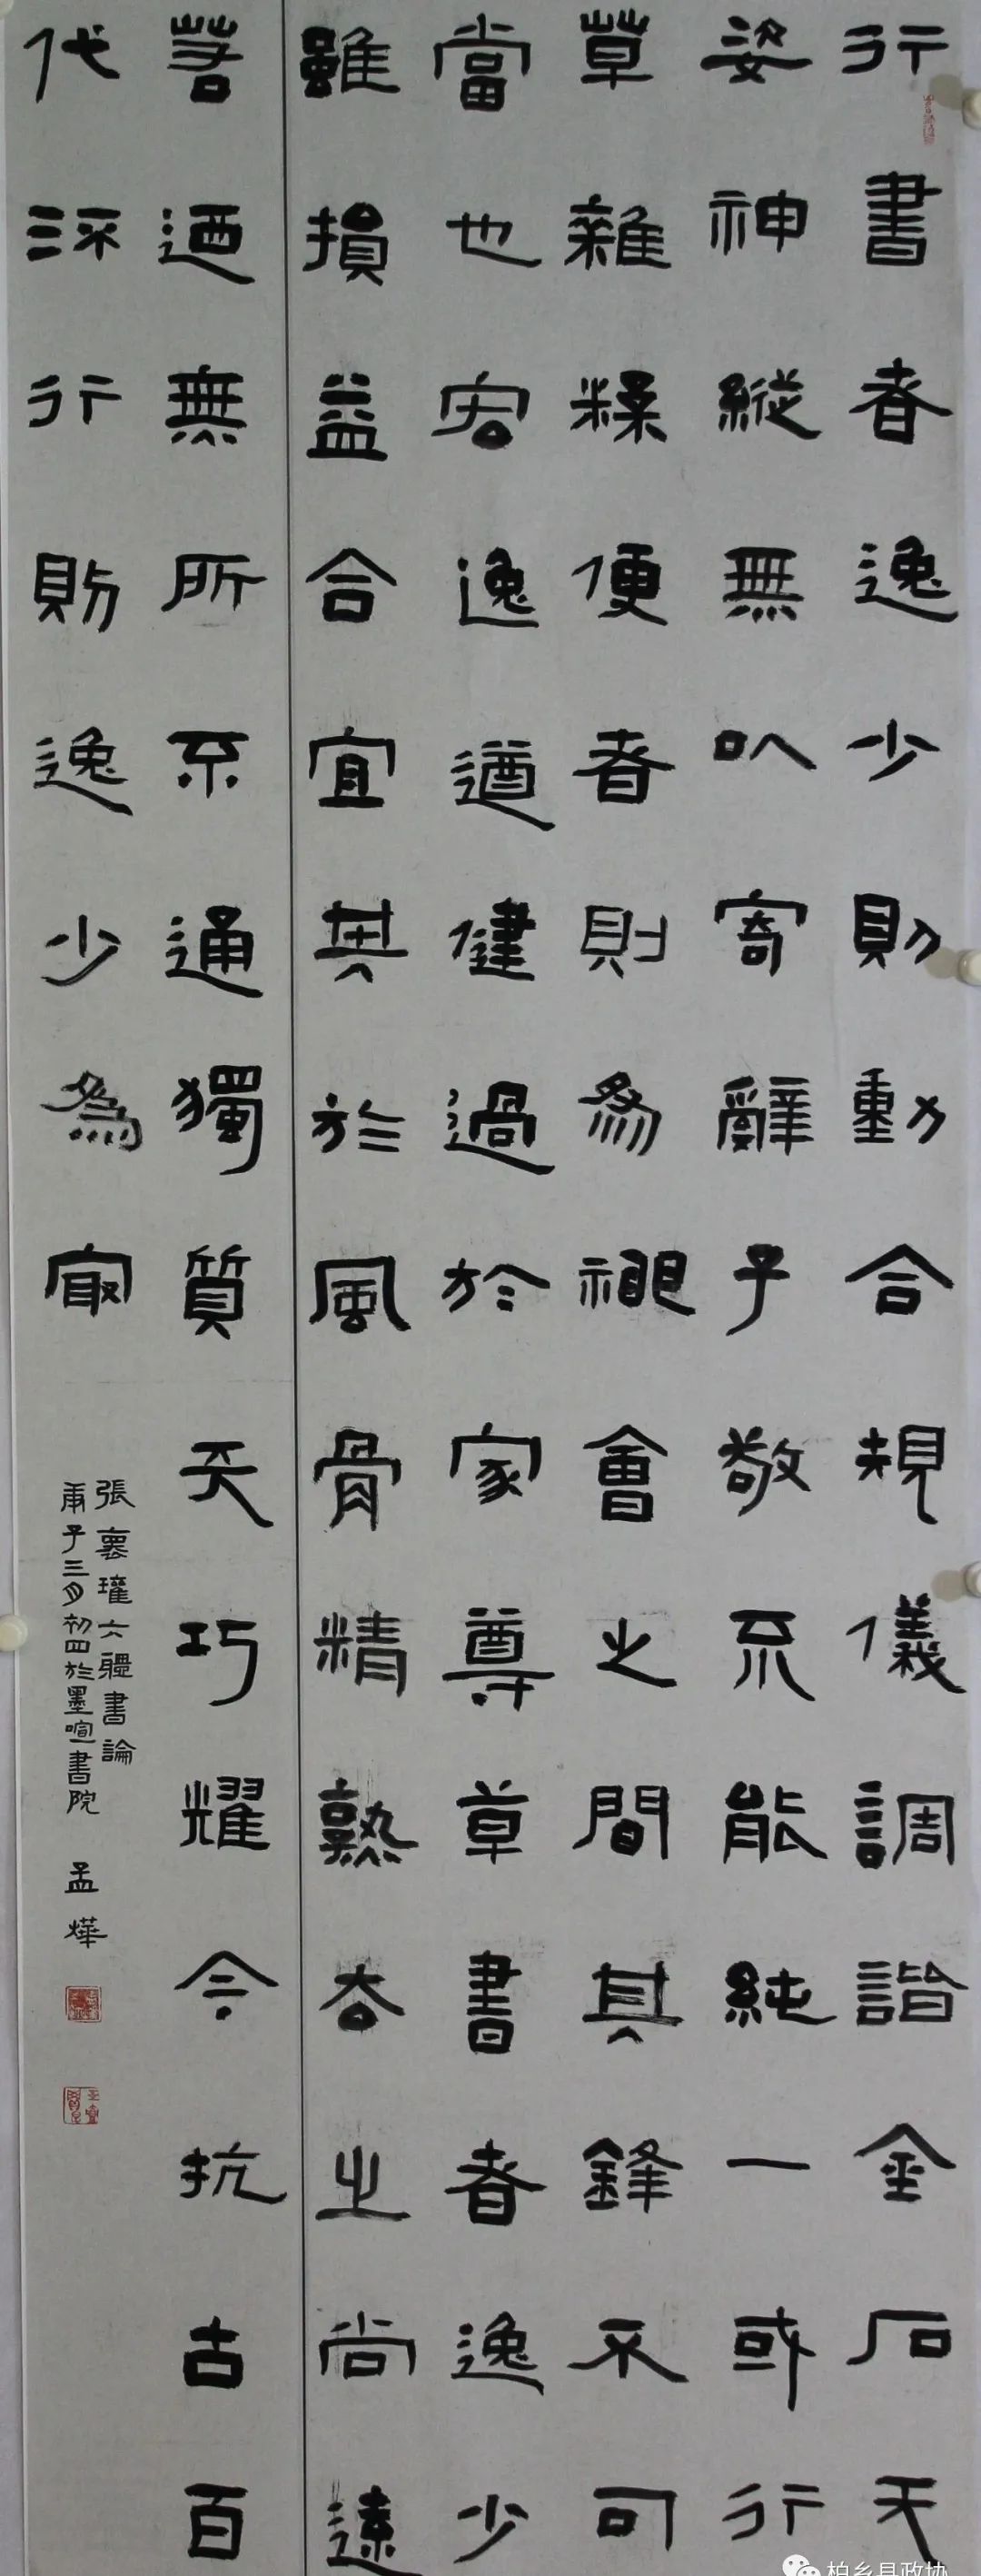 行書者逸少則動合規儀調諧金石天
姿神縱無以寄辭子敬不能純一或行
草雜糅便者則為神會之間其鋒不可
當也宏逸遒健過於家尊草書者逸少
雖損益合宜其於風骨精熟去之尚遠
若迺無所不通獨質天巧耀今抗古百
代流行則逸少為最
張懷瓘六體書論
庚子三月初四於墨喧書院 孟燁
柏乡县政协